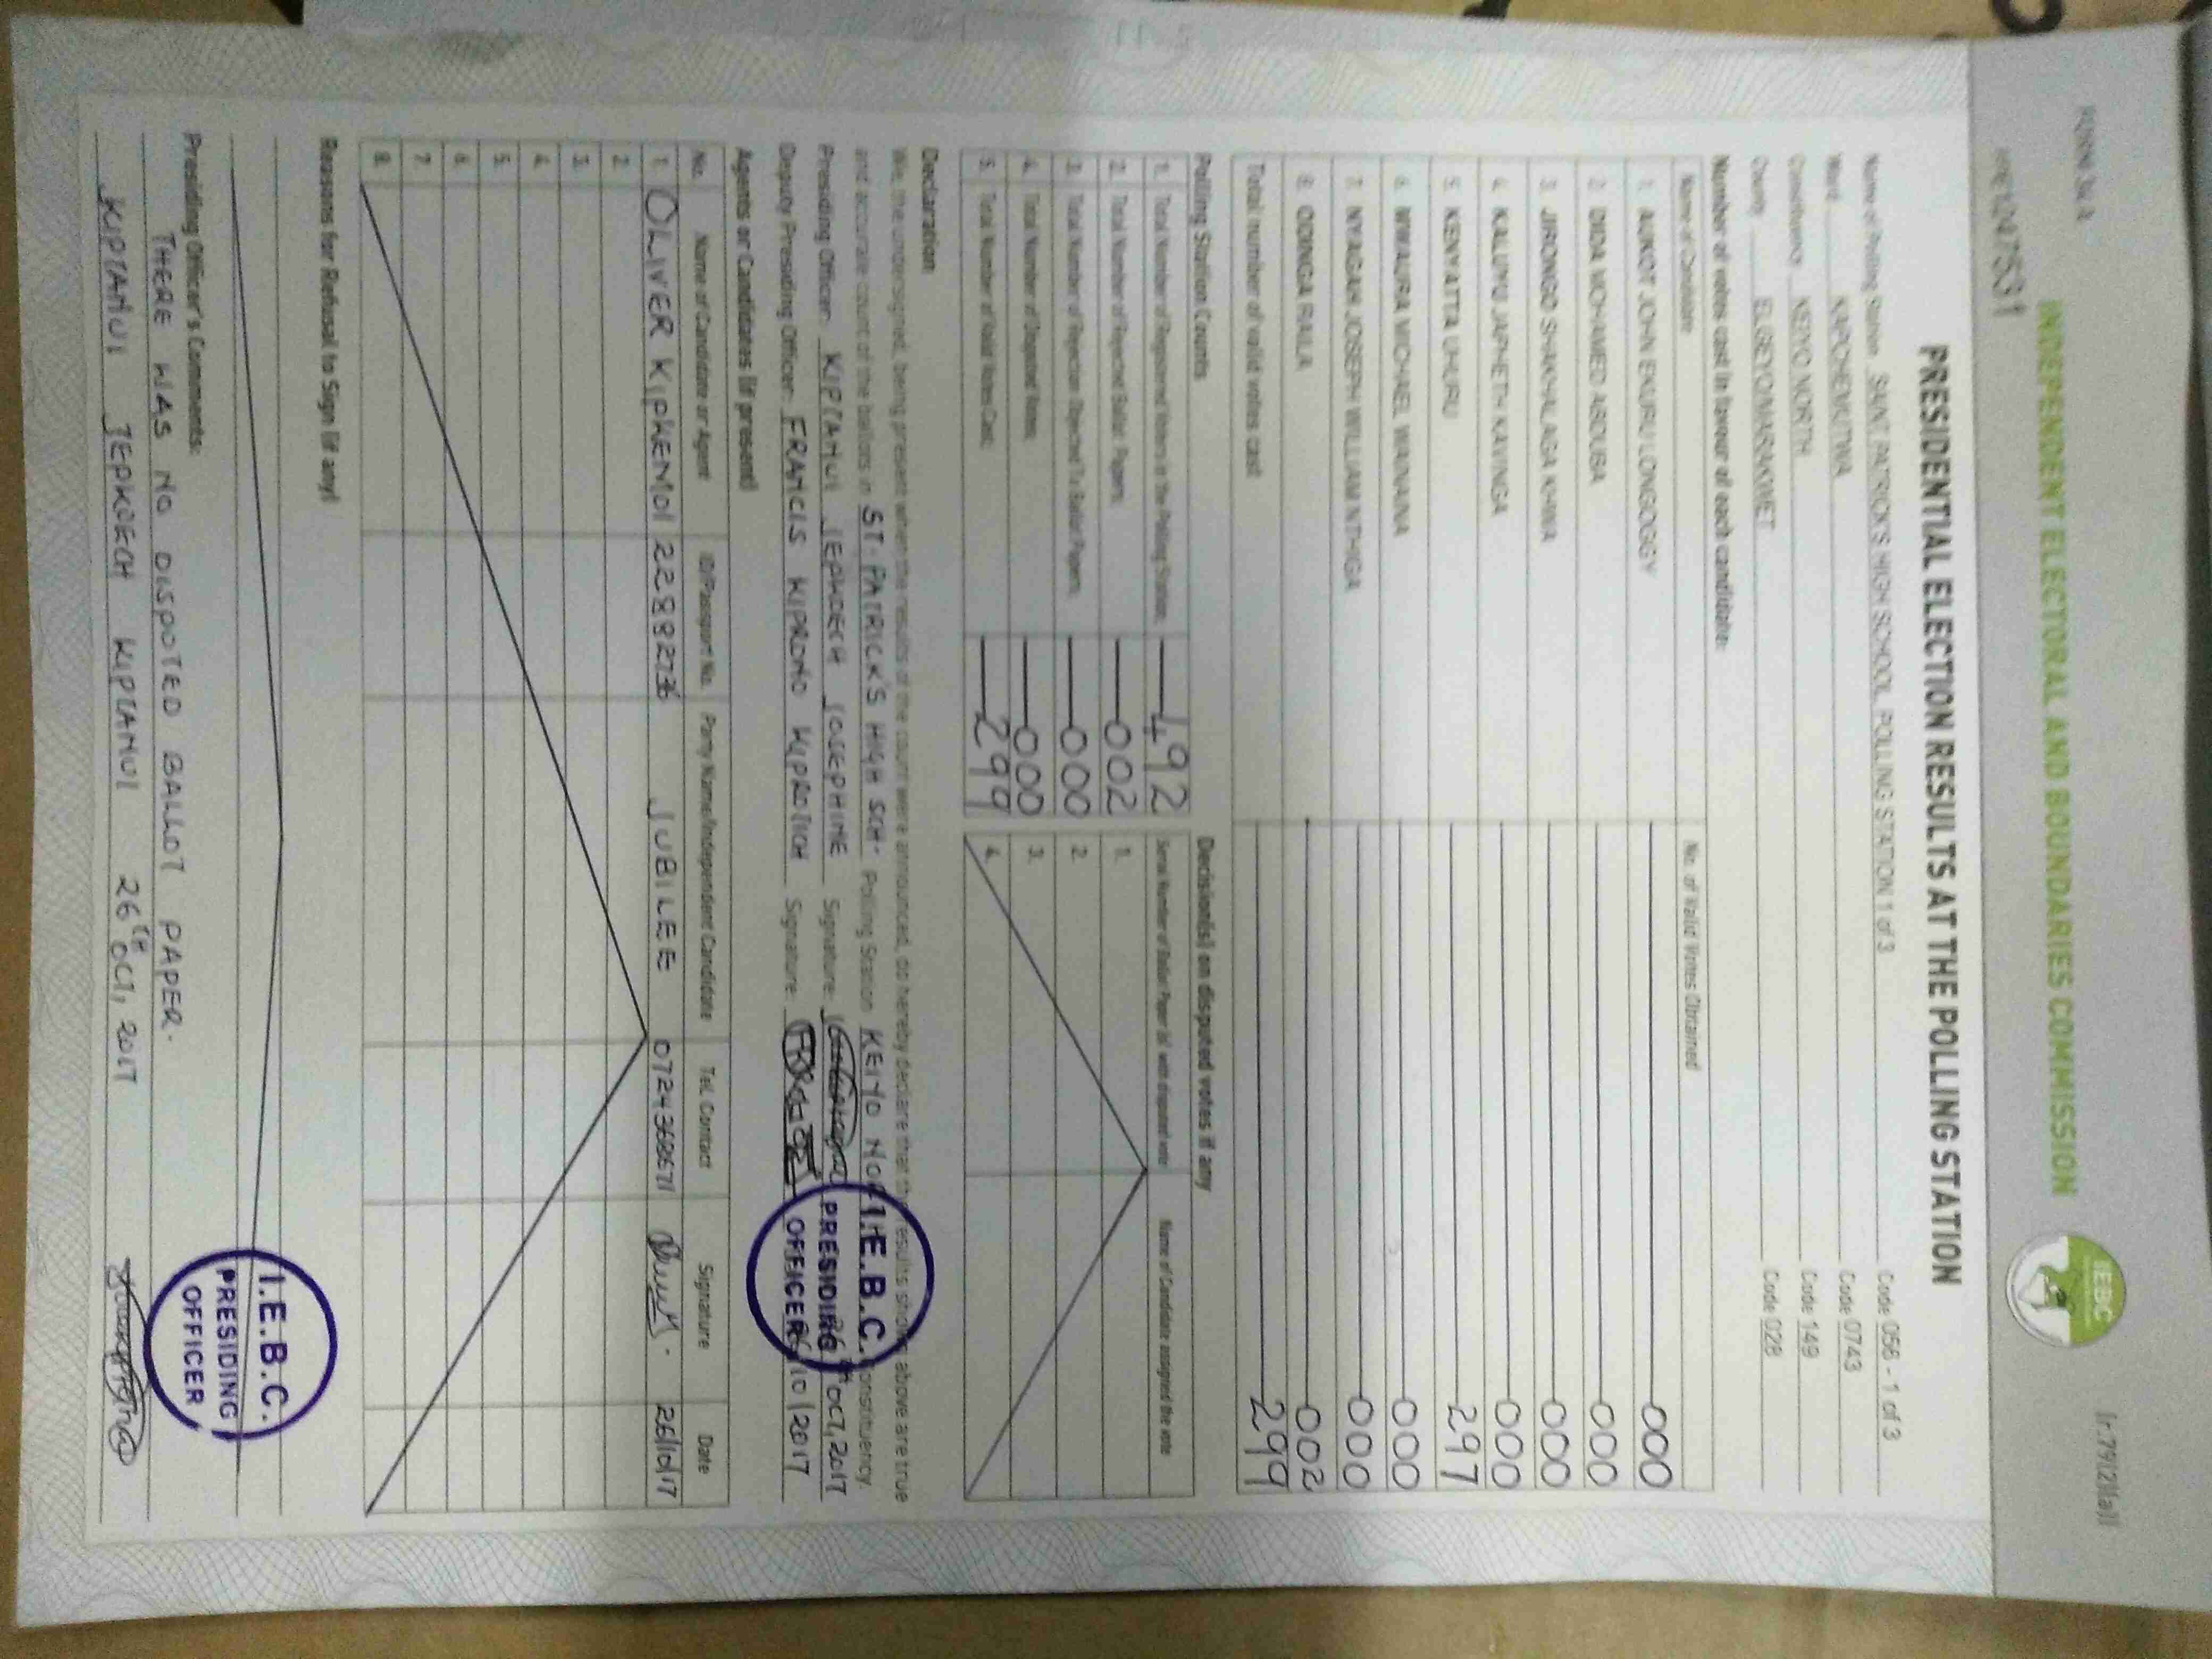 FORM 34 A
INDEPENDENT ELECTORAL AND BOUNDARIES COMMISSION
IEBC
PRESIDENTIAL ELECTION RESULTS AT THE POLLING STATION
Name of Polling Station SAINT PATRICK'S HIGH SCHOOL POLLING STATION 1 of 3 Code 056 - 1 of 3
Ward KAPCHEMUTWA Code 0743
Constituency KEIYO NORTH Code 149
County ELGEYO/MARAKWET Code 028
Number of votes cast in favour of each candidate:
Name of Candidate No. of Valid Votes Obtained
1. AUKOT JOHN EKURU LONGOGGY 000
2. DIDA MOHAMED ABDUBA 000
3. JIRONGO SHAKHALAGA KHWA 000
4. KALUYU JAPHETH KAVINGA 000
5. KENYATTA UHURU 297
6. MWAURA MICHAEL WAINAINA 000
7. NYAGAH JOSEPH WILLIAM NTHIGA 000
8. ODINGA RAILA 002
Total number of valid votes cast 299
Polling Station Counts
1. Total Number of Registered Voters in the Polling Station 492
2. Total Number of Rejected Ballot Papers 002
3. Total Number of Rejection Objected To Ballot Papers 000
4. Total Number of Disputed Votes 000
5. Total Number of Valid Votes Cast 299
Decision(s) on disputed votes if any
Serial Number of Ballot Paper (s) with disputed vote Name of Candidate assigned the vote
1.
2.
3.
4.
Declaration
We, the undersigned, being present when the results of the count were announced, do hereby declare that the results shown above are true
and accurate count of the ballots in ST. PATRICK'S HIGH SCH. Polling Station KEIYO Constituency
Presiding Officer: KIPTANUI JEPKOECH JOSEPHINE Signature: 26th OCT, 2017
Deputy Presiding Officer: FRANCIS KIPRONO KIPROTICH Signature: 10/2017
I.E.B.C.
PRESIDING
OFFICER
Agents or Candidates (if present)
No. Name of Candidate or Agent ID/Passport No. Party Name/Independent Candidate Tel. Contact Signature Date
1. OLIVER KIPKEMOI 22882736 JUBILEE 26/10/17
2.
3.
4.
5.
6.
7.
8.
Reasons for Refusal to Sign (if any)
Presiding Officer's Comments:
THERE WAS NO DISPOTED BALLOT PAPER.
KIPTANUI JEPKOECH KIPTANUI 26TH OCT, 2017
I.E.B.C.
PRESIDING
OFFICER